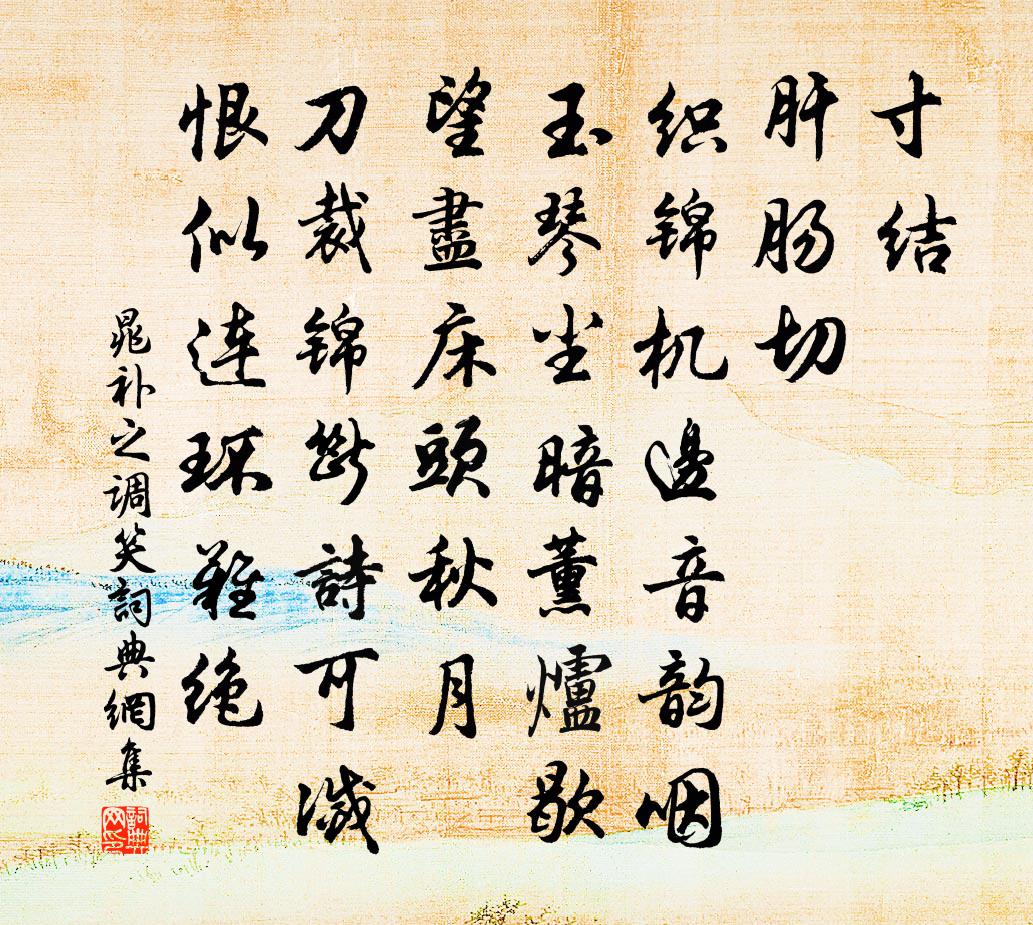 寸结
肝肠切
织锦机邊音韵咽
玉琴尘暗薰爐歇
望盡床頭秋月
刀裁锦斷詩可滅
恨似连环難绝
晁补之调笑詞典網集
詞典网印